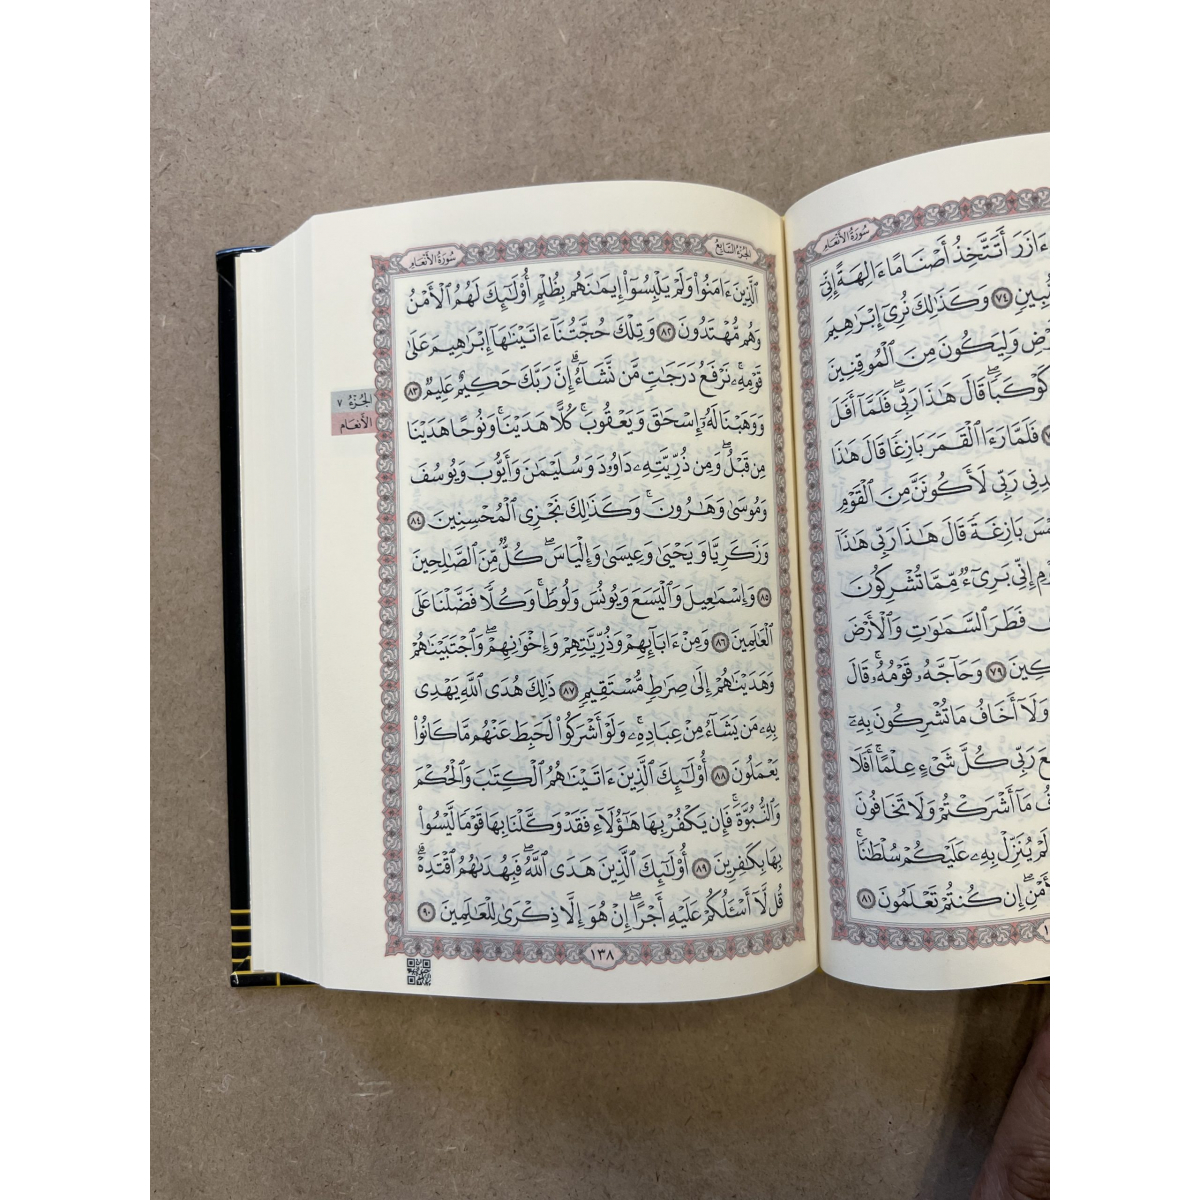 سورة الأنعام
ءَازَرَ أَتَتَّخِذُ أَصْنَامًا ءَالِهَةً إِنِّي
مُّبِينٍ ٧٤ وَكَذَٰلِكَ نُرِيٓ إِبْرَٰهِيمَ
وَلِيَكُونَ مِنَ ٱلْمُوقِنِينَ
كَوْكَبًاۖ قَالَ هَٰذَا رَبِّيۖ فَلَمَّآ أَفَلَ
فَلَمَّا رَءَا ٱلْقَمَرَ بَازِغًا قَالَ هَٰذَا
رَبِّي لَأَكُونَنَّ مِنَ ٱلْقَوْمِ
بَازِغَةً قَالَ هَٰذَا رَبِّي هَٰذَآ
إِنِّي بَرِيٓءٌ مِّمَّا تُشْرِكُونَ
فَطَرَ ٱلسَّمَٰوَٰتِ وَٱلْأَرْضَ
٧٩ وَحَآجَّهُۥ قَوْمُهُۥۚ قَالَ
وَلَآ أَخَافُ مَا تُشْرِكُونَ بِهِۦٓ
رَبِّي كُلَّ شَيْءٍ عِلْمًاۚ أَفَلَا
مَآ أَشْرَكْتُمْ وَلَا تَخَافُونَ
لَمْ يُنَزِّلْ بِهِۦ عَلَيْكُمْ سُلْطَٰنًاۚ
إِن كُنتُمْ تَعْلَمُونَ ٨١
الجزء السابع
سورة الأنعام
ٱلَّذِينَ ءَامَنُوا۟ وَلَمْ يَلْبِسُوٓا۟ إِيمَٰنَهُم بِظُلْمٍ أُو۟لَٰٓئِكَ لَهُمُ ٱلْأَمْنُ
وَهُم مُّهْتَدُونَ ٨٢ وَتِلْكَ حُجَّتُنَآ ءَاتَيْنَٰهَآ إِبْرَٰهِيمَ عَلَىٰ
قَوْمِهِۦۚ نَرْفَعُ دَرَجَٰتٍ مَّن نَّشَآءُۗ إِنَّ رَبَّكَ حَكِيمٌ عَلِيمٌ ٨٣
وَوَهَبْنَا لَهُۥٓ إِسْحَٰقَ وَيَعْقُوبَۚ كُلًّا هَدَيْنَاۚ وَنُوحًا هَدَيْنَا
مِن قَبْلُۖ وَمِن ذُرِّيَّتِهِۦ دَاوُۥدَ وَسُلَيْمَٰنَ وَأَيُّوبَ وَيُوسُفَ
وَمُوسَىٰ وَهَٰرُونَۚ وَكَذَٰلِكَ نَجْزِي ٱلْمُحْسِنِينَ ٨٤
وَزَكَرِيَّا وَيَحْيَىٰ وَعِيسَىٰ وَإِلْيَاسَۖ كُلٌّ مِّنَ ٱلصَّٰلِحِينَ
٨٥ وَإِسْمَٰعِيلَ وَٱلْيَسَعَ وَيُونُسَ وَلُوطًاۚ وَكُلًّا فَضَّلْنَا عَلَى
ٱلْعَٰلَمِينَ ٨٦ وَمِنْ ءَابَآئِهِمْ وَذُرِّيَّٰتِهِمْ وَإِخْوَٰنِهِمْۖ وَٱجْتَبَيْنَٰهُمْ
وَهَدَيْنَٰهُمْ إِلَىٰ صِرَٰطٍ مُّسْتَقِيمٍ ٨٧ ذَٰلِكَ هُدَى ٱللَّهِ يَهْدِي
بِهِۦ مَن يَشَآءُ مِنْ عِبَادِهِۦۚ وَلَوْ أَشْرَكُوا۟ لَحَبِطَ عَنْهُم مَّا كَانُوا۟
يَعْمَلُونَ ٨٨ أُو۟لَٰٓئِكَ ٱلَّذِينَ ءَاتَيْنَٰهُمُ ٱلْكِتَٰبَ وَٱلْحُكْمَ
وَٱلنُّبُوَّةَۚ فَإِن يَكْفُرْ بِهَا هَٰٓؤُلَآءِ فَقَدْ وَكَّلْنَا بِهَا قَوْمًا لَّيْسُوا۟
بِهَا بِكَٰفِرِينَ ٨٩ أُو۟لَٰٓئِكَ ٱلَّذِينَ هَدَى ٱللَّهُۖ فَبِهُدَىٰهُمُ ٱقْتَدِهْۗ
قُل لَّآ أَسْـَٔلُكُمْ عَلَيْهِ أَجْرًاۖ إِنْ هُوَ إِلَّا ذِكْرَىٰ لِلْعَٰلَمِينَ ٩٠
١٣٨
الجزء ٧
الأنعام